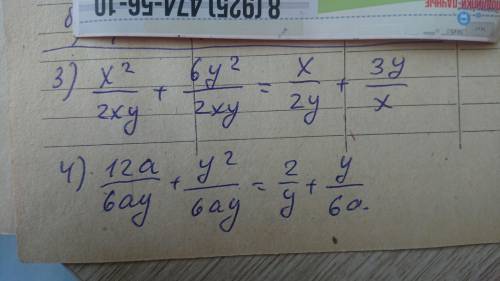 8 (925) 474-56-10
3) x²/2xy + 6y²/2xy = x/2y + 3y/x
4) 12a/6ay + y²/6ay = 2/y + y/6a